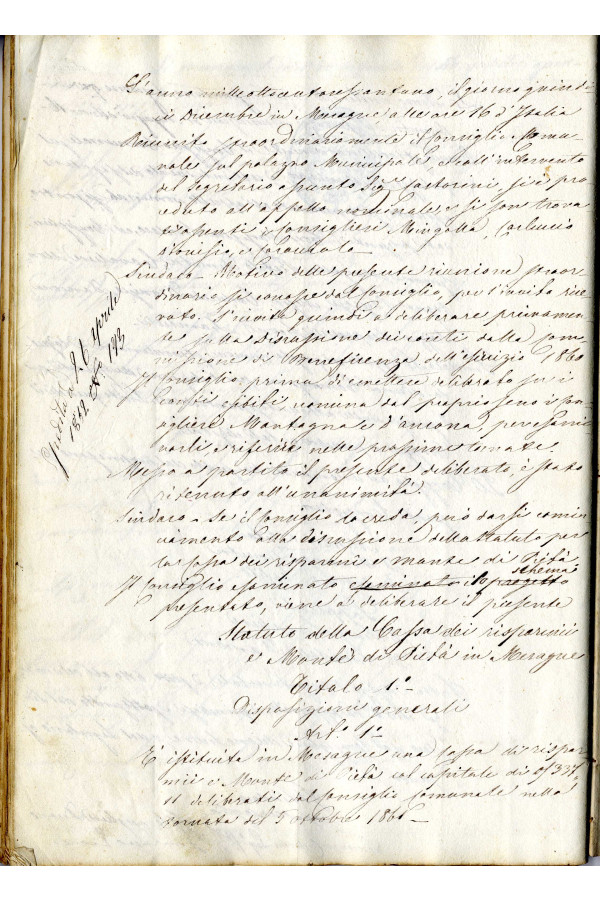 L'anno mille ottocento sessantuno, il giorno quindi
ci Dicembre in Mesagne alle ore 16 d'Italia
Riunito straordinariamente il Consiglio Comu-
nale sul palazzo Municipale, e coll'intervento
del Segretario Sig.r Sartorini, si è pro
ceduto all'appello nominale, e si son trova
ti assenti i Consiglieri Mingolla, Carluccio
Dionisio, e
Sindaco – Motivo della presente riunione straor
dinaria si conosce dal Consiglio, per l'invito rice
vuto. L'invita quindi a deliberare primamen
te sulla discussione dei conti della Com
missione di Beneficenza dell'esercizio 1860
Il Consiglio prima di emettere deliberato su i
conti esibiti, nomina dal proprio seno i con
siglieri Montagna e d'Ancona, per esami
narli, e riferire nelle prossime tornate.
Messo a partito il presente deliberato, è stato
ritenuto all'unanimità.
Sindaco – Se il Consiglio lo creda, può darsi comin
ciamento alla discussione dello statuto per
la cassa dei risparmii e monte di Pietà
schema
Il Consiglio esaminato esaminato il progetto
presentato, viene a deliberare il presente
Statuto della Cassa dei risparmii
e Monte di Pietà in Mesagne
Titolo 1.º
Disposizioni generali
Art.º 1º
È istituita in Mesagne una Cassa di rispar
mii e Monte di Pietà col capitale di
11 deliberati dal Consiglio Comunale nella
tornata del 5 ottobre 1861 –
Spedita a' 6 Aprile
1862 N.º 193